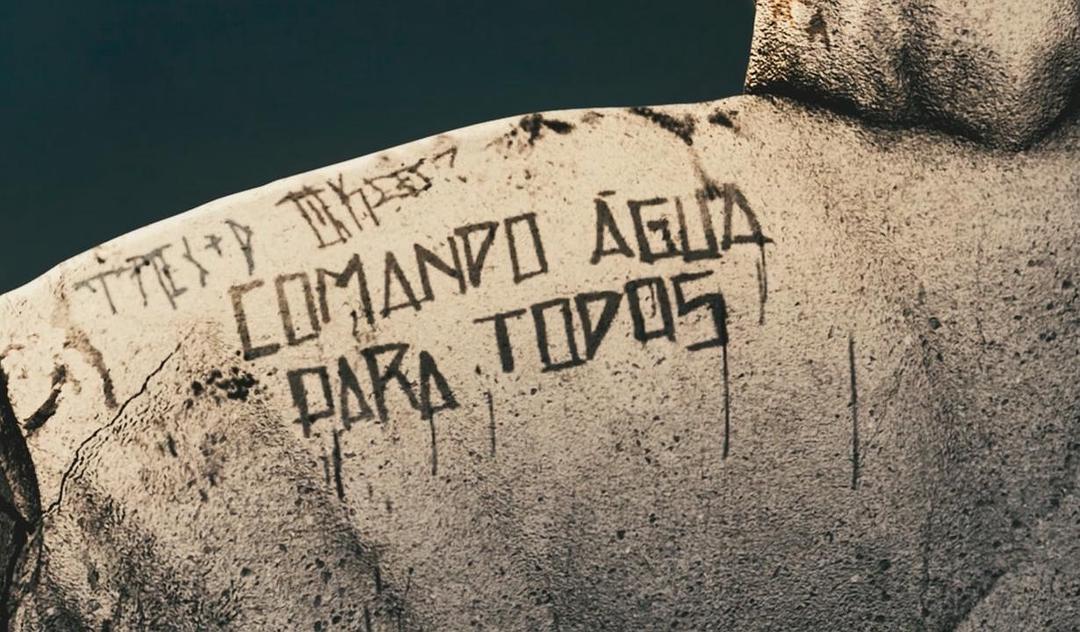 COMANDO ÁGUA
PARA TODOS